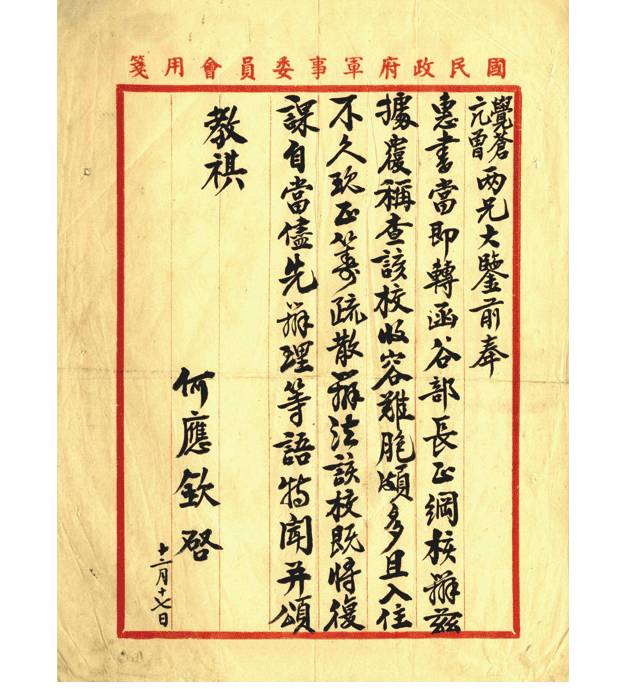 國民政府軍事委員會用箋
覺蒼
亢曾兩兄大鑒前奉
惠書當即轉函谷部長正綱核辦茲
據覆稱查該校收容難胞頗多且入住
不久現正籌疏散辦法該校既將復
課自當儘先辦理等語特聞并頌
教祺
何應欽啓
十二月十七日